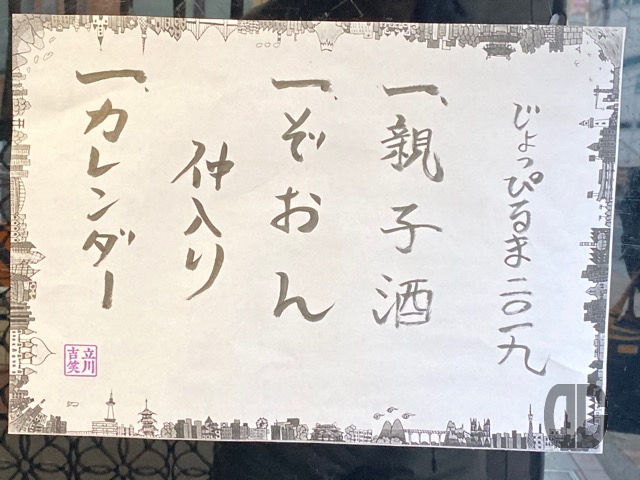 じょっぴるま二〇一九
一、親子酒
一、ぞおん
仲入り
一、カレンダー
立川
吉笑